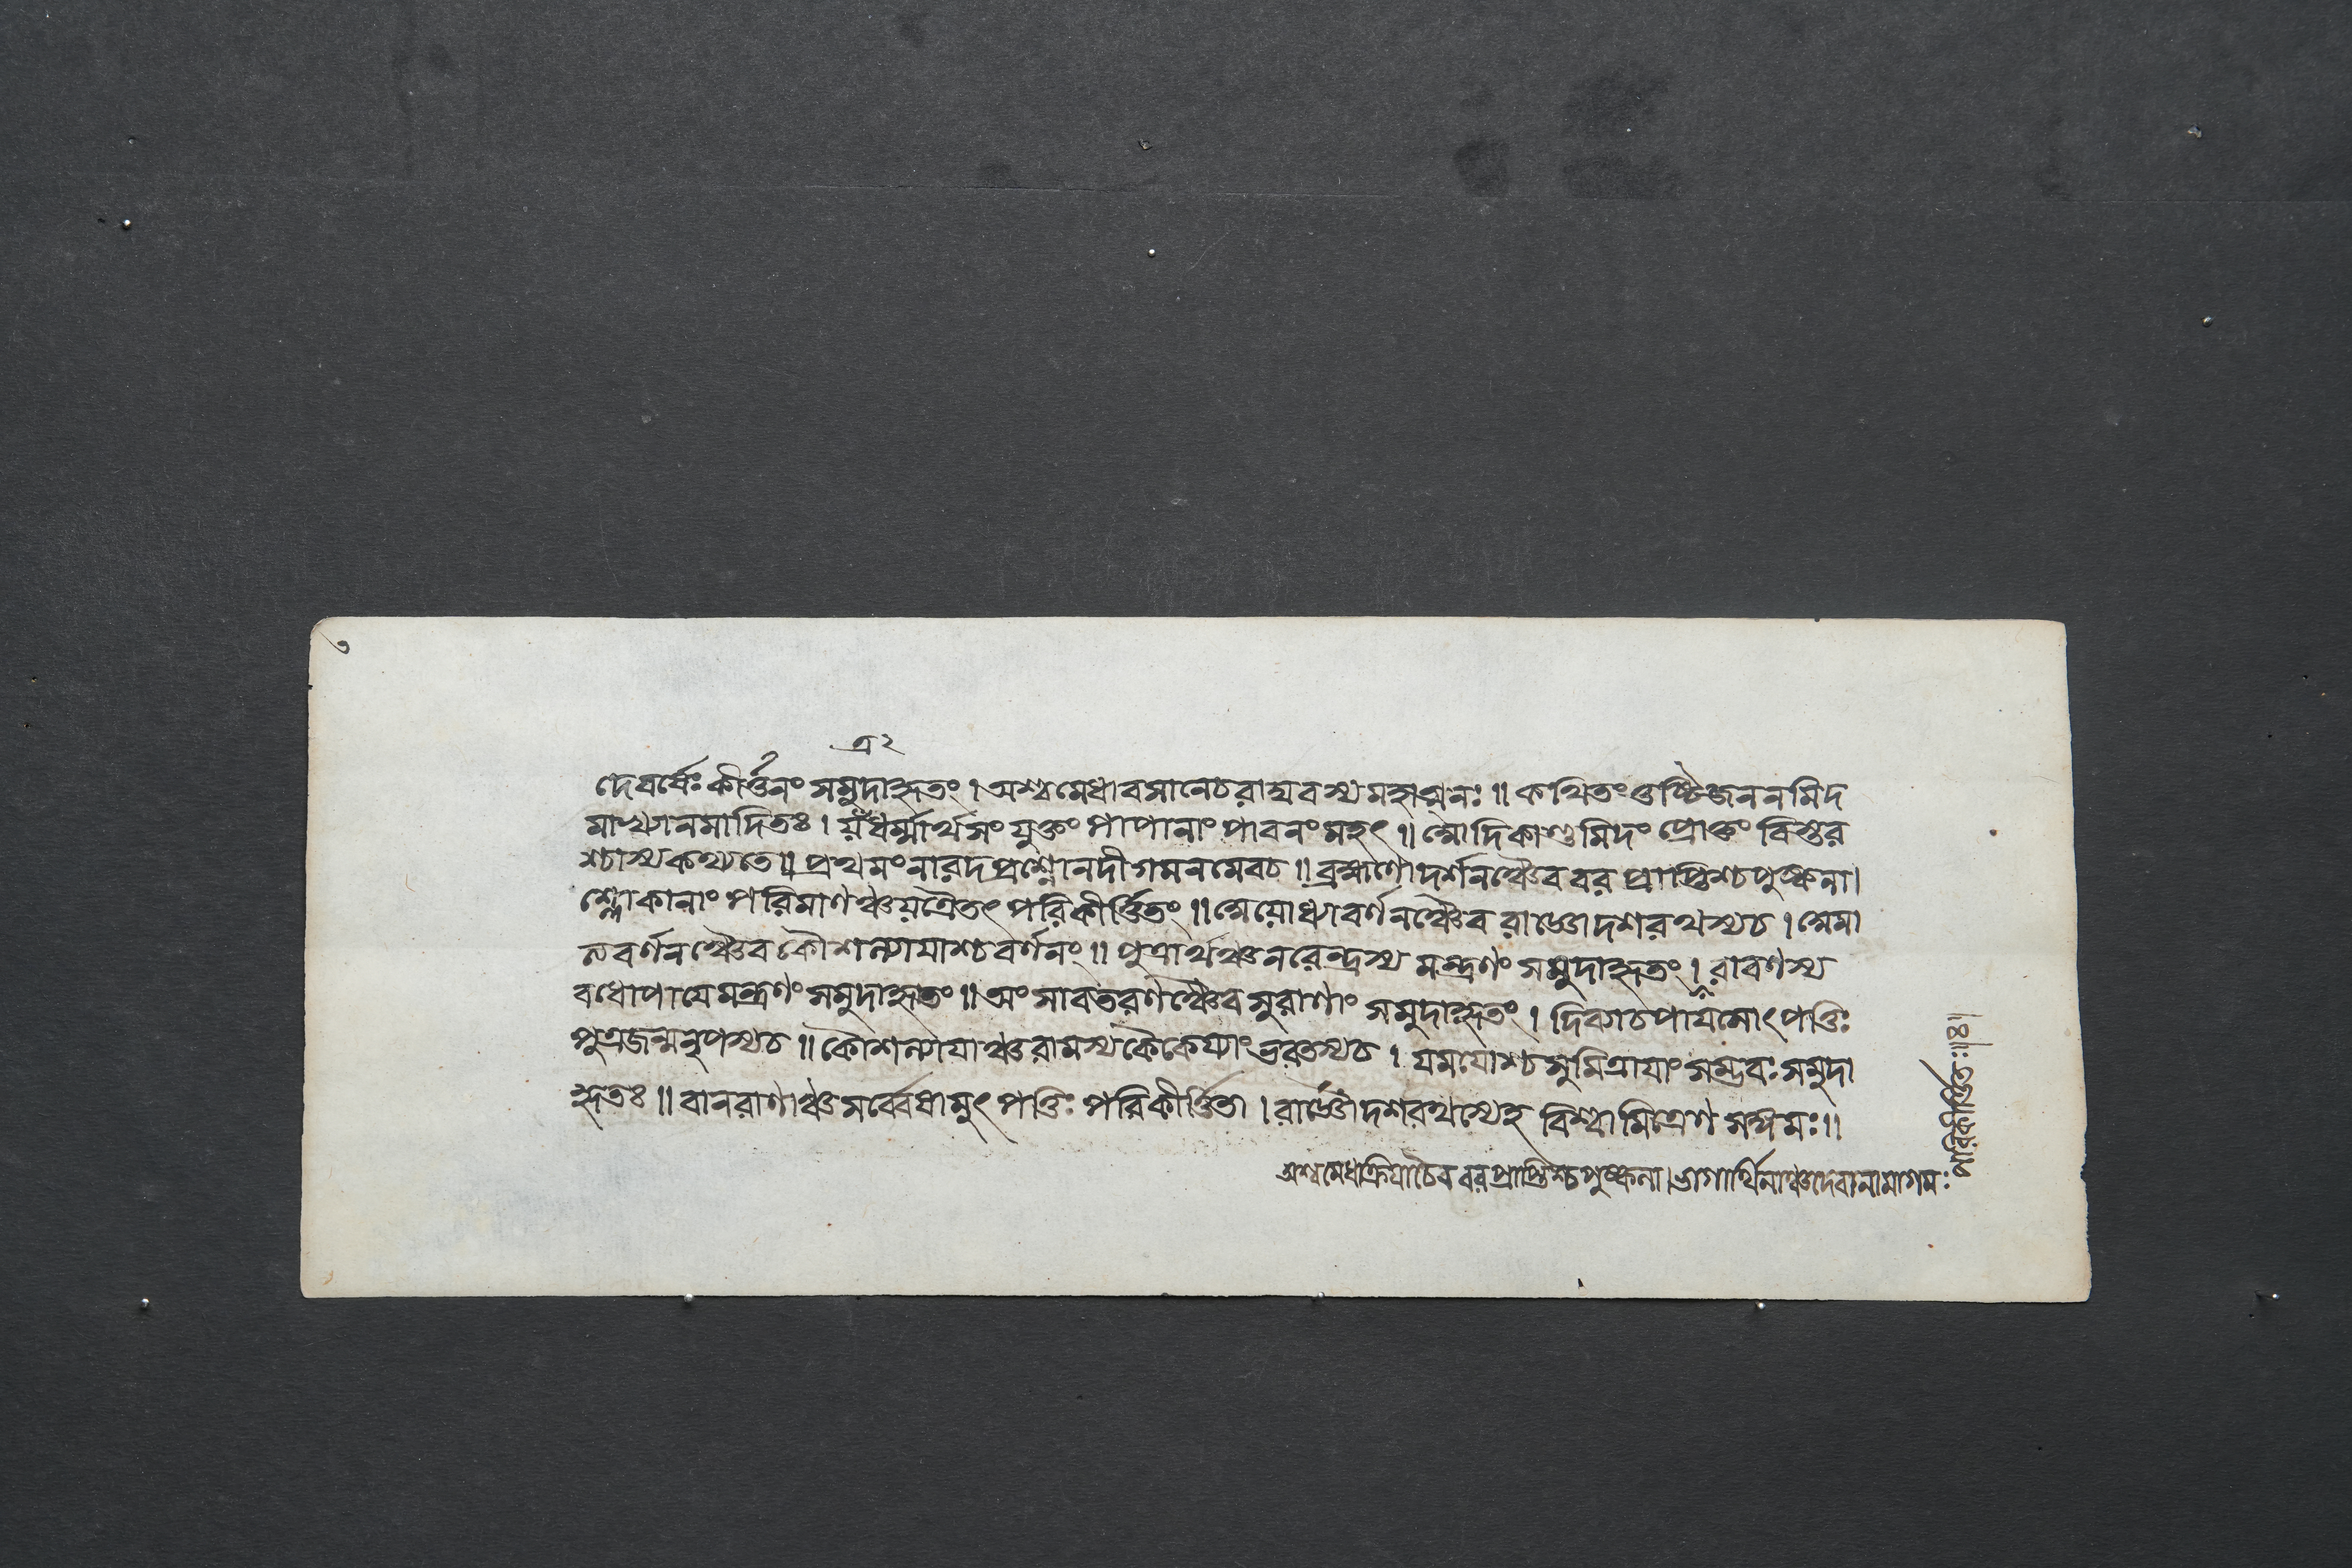 ৩
ত্র ২
দেবর্ষেঃ কীর্ত্তনং সমুদাহৃতং । অশ্বমেধাবসানেচ রাঘবস্য মহাত্মনঃ ॥ কথিতং তুষ্টিজননমিদ
মাখ্যানমাদিতঃ । ধর্ম্মার্থসংযুক্তং পাপানাং পাবনং মহৎ ॥ আদিকাণ্ডমিদং প্রোক্তং বিস্তর
শ্চাস্য কথ্যতে ॥ প্রথমং নারদপ্রশ্নো নদীগমনমেবচ ॥ ব্রহ্মণো দর্শনঞ্চৈব বর প্রাপ্তিশ্চ পুষ্কলা।
শ্লোকানাং পরিমাণঞ্চ যত্রৈতৎ পরিকীর্ত্তিতং ॥ অযোধ্যাবর্ণনঞ্চৈব রাজ্ঞো দশরথস্যচ । অমা
ত্যবর্ণনঞ্চৈব কৌশল্যাযাশ্চ বর্ণনং ॥ পুত্রার্থঞ্চ নরেন্দ্রস্য মন্ত্রণং সমুদাহৃতং । রাবণস্য
বধোপাযে মন্ত্রণং সমুদাহৃতং ॥ অংশাবতরণঞ্চৈব সুরাণাং সমুদাহৃতং । দিব্যাচ পাযসোৎপত্তিঃ
পুত্রজন্ম নৃপস্যচ ॥ কৌশল্যাযাঞ্চ রামস্য কৈকেয্যাং ভরতস্যচ । যমযোশ্চ সুমিত্রাযাং সম্ভবঃ সমুদা
হৃতঃ ॥ বানরাণাঞ্চ সর্ব্বেষামুৎপত্তিঃ পরিকীর্ত্তিতা । রাজ্ঞো দশরথস্যেহ বিশ্বামিত্রেণ সঙ্গমঃ ॥
অশ্বমেধক্রিযাচৈব বরপ্রাপ্তিশ্চ পুষ্কলা । ভাগার্থিনাঞ্চ দেবানামাগমঃ
পরিকীর্ত্তিতঃ ॥৪॥